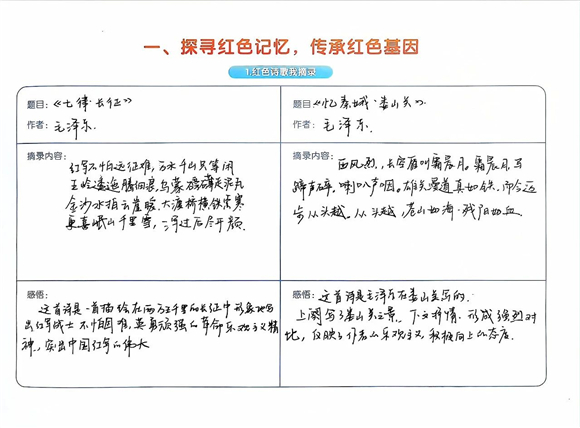 一、探寻红色记忆，传承红色基因
1.红色诗歌我摘录
题目：《七律·长征》
作者：毛泽东.
摘录内容：
红军不怕远征难，万水千山只等闲
五岭逶迤腾细浪，乌蒙磅礴走泥丸
金沙水拍云崖暖，大渡桥横铁索寒
更喜岷山千里雪，三军过后尽开颜.
感悟：
这首诗是一首描绘在两万五千里的长征中形象地写
出红军战士不怕困难，英勇顽强的革命乐观主义精
神，突出中国红军的伟大
题目：《忆秦娥·娄山关》.
作者：毛泽东.
摘录内容：
西风烈，长空雁叫霜晨月。霜晨月，马
蹄声碎，喇叭声咽。雄关漫道真如铁，而今迈
步从头越。从头越，苍山如海，残阳如血
感悟：这首诗是毛泽东在娄山关写的.
上阕写了娄山关之景，下文抒情，形成强烈对
比，反映了作者的乐观主义，积极向上的态度.